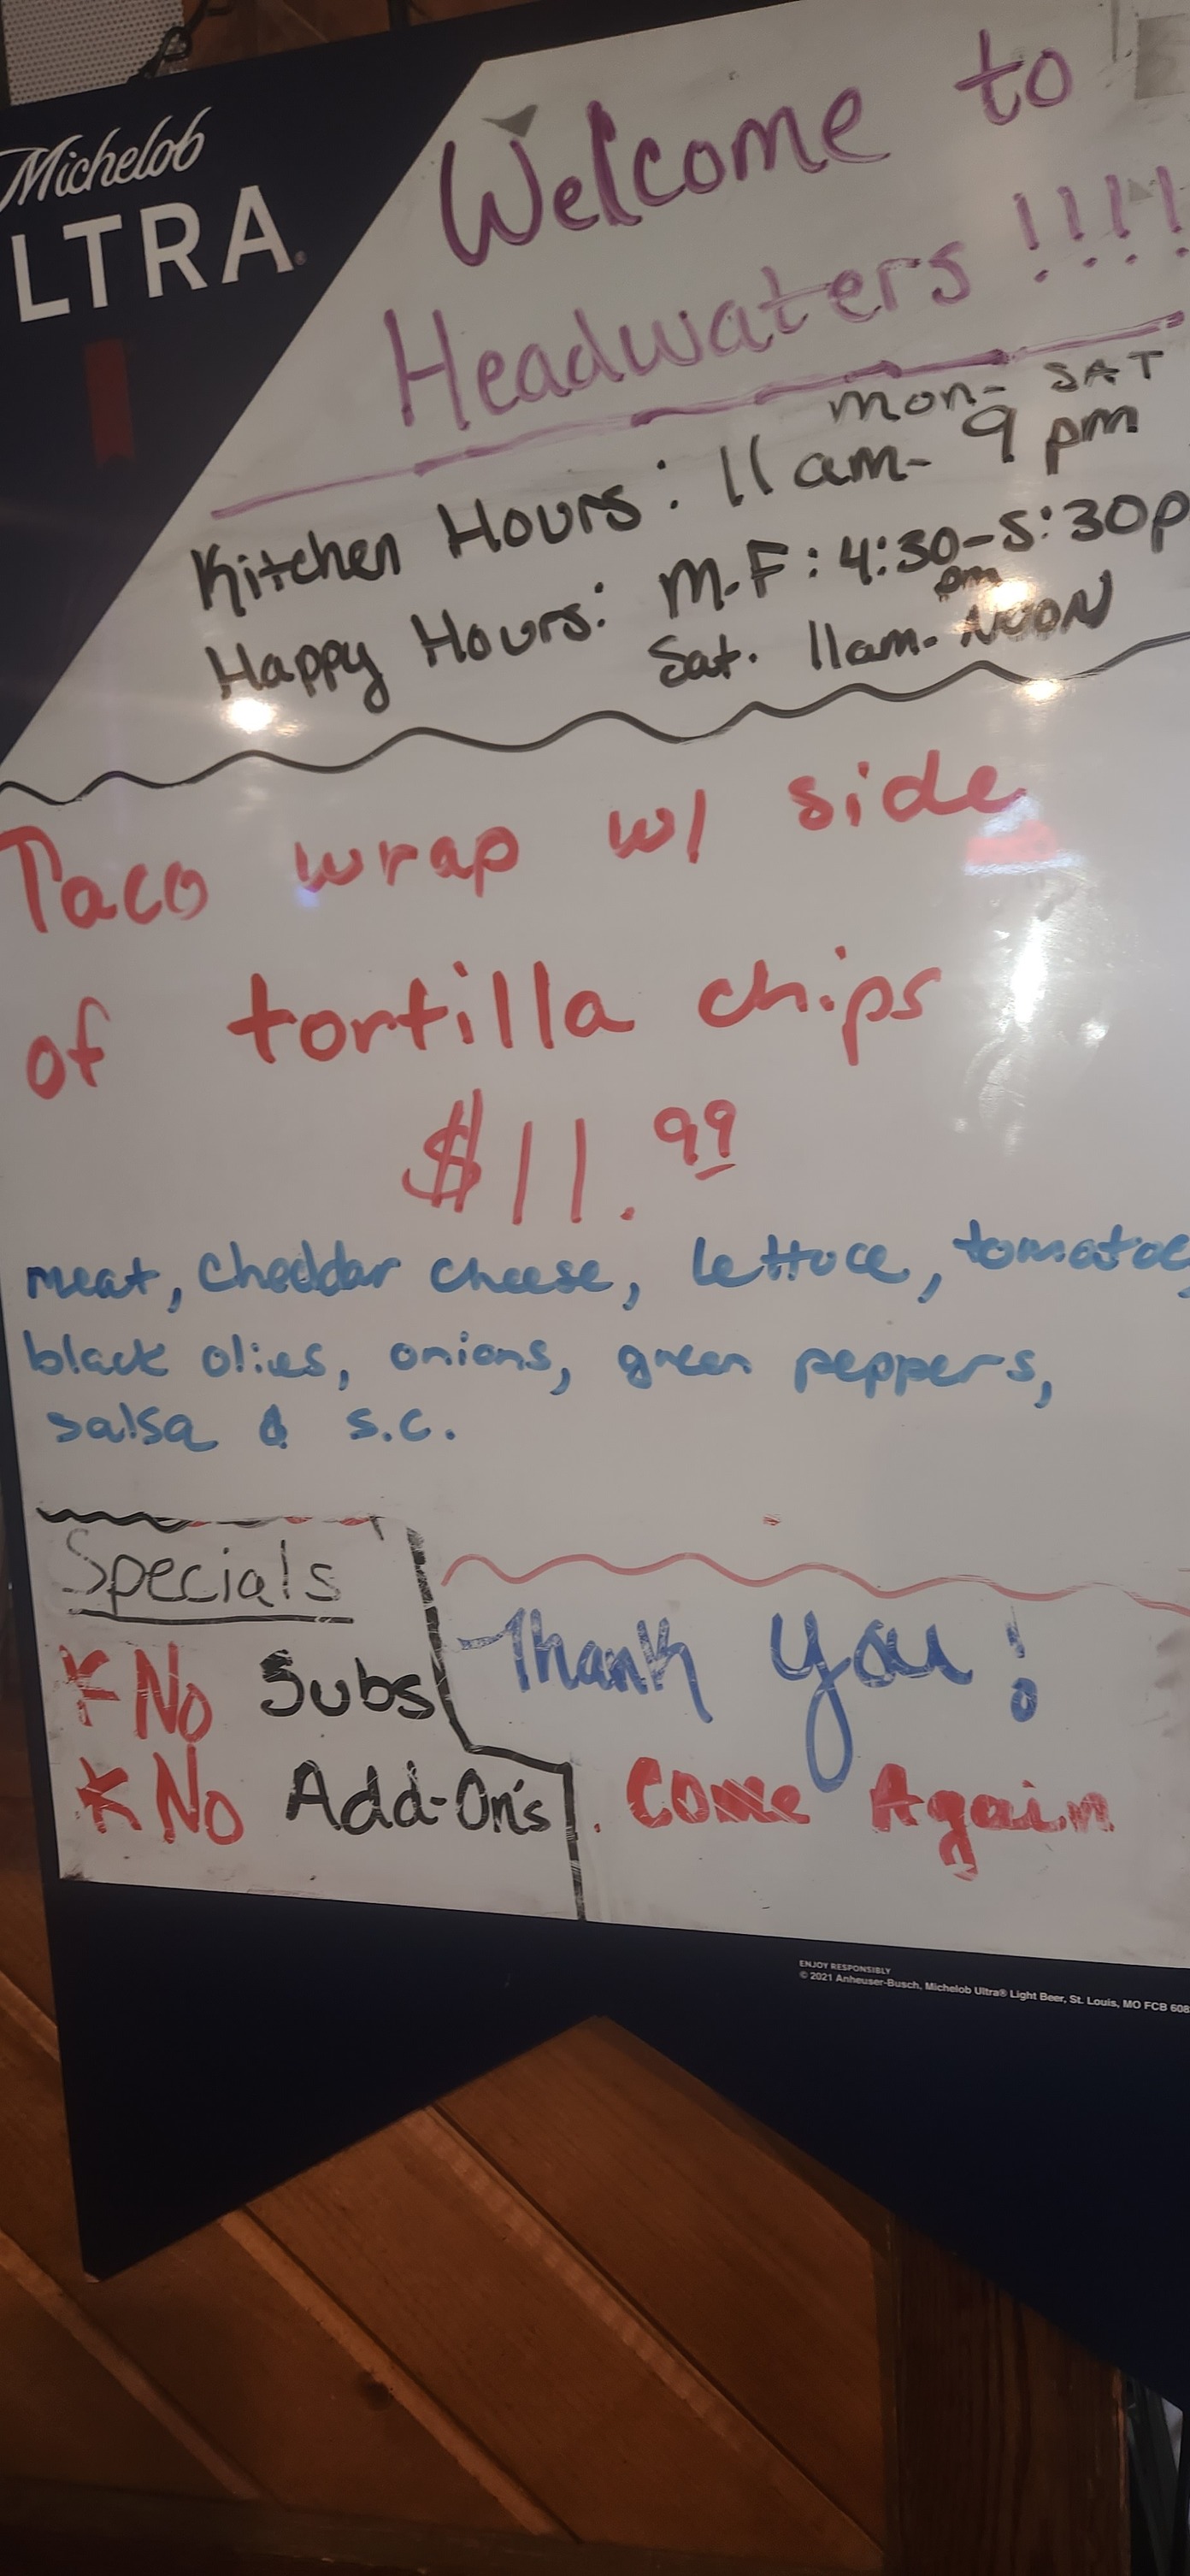 Michelob
LTRA®
Welcome to
Headwaters !!!!
Mon- SAT
Kitchen Hours: 11am- 9pm
Happy Hours: M-F: 4:30-5:30p
pm
Sat. 11am- NOON
Taco wrap w/ side
of tortilla chips
$11.99
meat, cheddar cheese, lettuce, tomatoe,
black olives, onions, green peppers,
salsa & s.c.
Specials
*No Subs
*No Add-On's
Thank you!
Come Again
ENJOY RESPONSIBLY
© 2021 Anheuser-Busch, Michelob Ultra® Light Beer, St. Louis, MO FCB 608